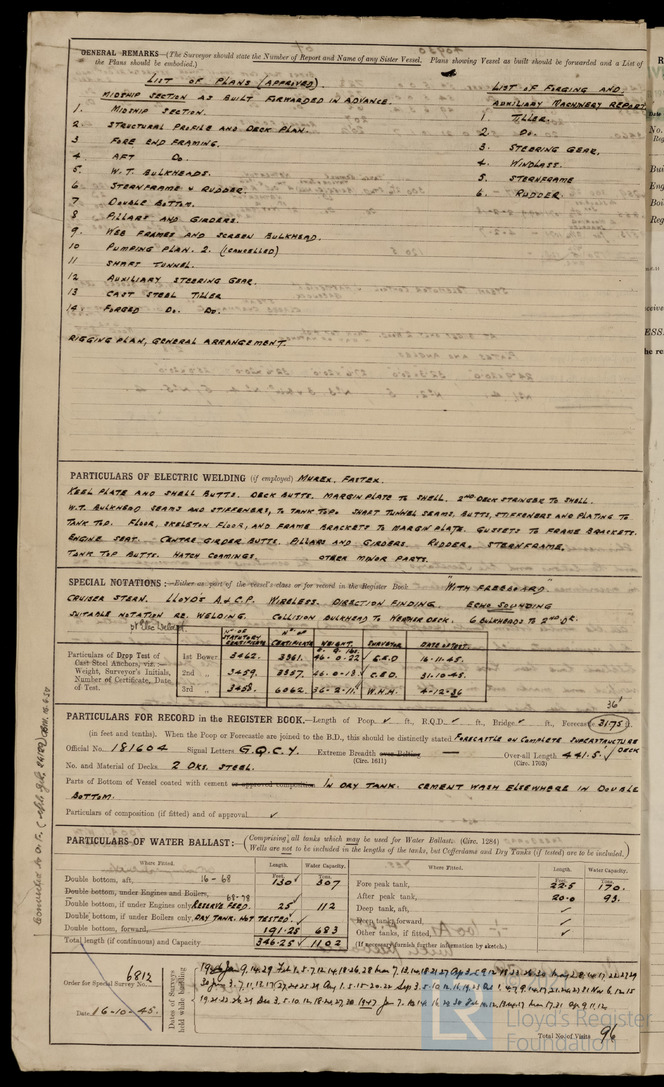 GENERAL REMARKS—(The Surveyor should state the Number of Report and Name of any Sister Vessel. Plans showing Vessel as built should be forwarded and a List of
the Plans should be embodied.)
LIST OF PLANS (APPROVED).
MIDSHIP SECTION AS BUILT FORWARDED IN ADVANCE.
1. MIDSHIP SECTION.
2 STRUCTURAL PROFILE AND DECK PLAN.
3 FORE END FRAMING.
4 AFT DO.
5 W.T. BULKHEADS.
6 STERNFRAME & RUDDER.
7 DOUBLE BOTTOM.
8 PILLARS AND GIRDERS.
9 WEB FRAMES AND SCREEN BULKHEAD.
10 PUMPING PLAN. 2. (CANCELLED)
11 SHAFT TUNNEL.
12 AUXILIARY STEERING GEAR.
13 CAST STEEL TILLER
14 FORGED DO. DO.
RIGGING PLAN, GENERAL ARRANGEMENT.
LIST OF FORGING AND
AUXILIARY MACHINERY REPORT
1. TILLER.
2. DO.
3. STEERING GEAR.
4. WINDLASS.
5. STERNFRAME
6. RUDDER.
PARTICULARS OF ELECTRIC WELDING (if employed) MUREX. FASTEX.
KEEL PLATE AND SHELL BUTTS. DECK BUTTS. MARGIN PLATE TO SHELL. 2ND DECK STRINGER TO SHELL.
W.T. BULKHEAD SEAMS AND STIFFENERS, TO TANK TOP. SHAFT TUNNEL SEAMS, BUTTS, STIFFENERS AND PLATING TO
TANK TOP. FLOOR, SKELETON FLOOR, AND FRAME BRACKETS TO MARGIN PLATE. GUSSETS TO FRAME BRACKETS.
ENGINE SEAT. CENTRE GIRDER BUTTS. PILLARS AND GIRDERS. RUDDER. STERNFRAME.
TANK TOP BUTTS. HATCH COAMINGS. OTHER MINOR PARTS.
SPECIAL NOTATIONS:—Either as part of the vessel's class or for record in the Register Book "WITH FREEBOARD"
CRUISER STERN. LLOYD'S A. & C.P. WIRELESS. DIRECTION FINDING. ECHO SOUNDING
SUITABLE NOTATION RE. WELDING. COLLISION BULKHEAD TO WEATHER DECK. 6 BULKHEADS TO 2ND DK.
Particulars of Drop Test of
Cast Steel Anchors, viz.:—
Weight, Surveyor's Initials,
Number of Certificate, Date
of Test.
No OF STATUTORY CERTIFICATE No OF CERTIFICATE WEIGHT. SURVEYOR DATE OF TEST.
1st Bower 3462. 3361. 46-0-22 C.E.D 16-11-45.
2nd „ 3459. 3357. 46-0-13 C.E.D. 31-10-45.
3rd „ 3458. 6062. 36-2-11 W.H.H. 4-12-36
36'
PARTICULARS FOR RECORD in the REGISTER BOOK.—Length of Poop ✓ ft., R.Q.D. ✓ ft., Bridge ✓ ft., Forecastle 31.75 ft.
(in feet and tenths). When the Poop or Forecastle are joined to the B.D., this should be distinctly stated FORECASTLE ON COMPLETE SUPERSTRUCTURE DECK
Official No. 181604 Signal Letters G.Q.C.Y. Extreme Breadth over Belting — (Circ. 1611) Over-all Length 441.5. (Circ. 1703)
No. and Material of Decks 2 DKS. STEEL.
Parts of Bottom of Vessel coated with cement or approved composition IN DRY TANK. CEMENT WASH ELSEWHERE IN DOUBLE
BOTTOM.
Particulars of composition (if fitted) and of approval ✓
PARTICULARS OF WATER BALLAST:—(Comprising all tanks which may be used for Water Ballast. (Circ. 1284)
Wells are not to be included in the lengths of the tanks, but Cofferdams and Dry Tanks (if tested) are to be included.)
Where Fitted. Length. Feet. Water Capacity. Tons.
Double bottom, aft, 16-68 130 307
Double bottom, under Engines and Boilers,
68-78
Double bottom, if under Engines only, RESERVE FEED. 25 112
Double bottom, if under Boilers only, DRY TANK. NOT TESTED
Double bottom, forward, 191.25 683
Total length (if continuous) and Capacity 346.25 1102
Where Fitted. Length. Feet. Water Capacity. Tons.
Fore peak tank, 22.5 170.
After peak tank, 20.0 93.
Deep tank, aft, ✓
Deep tank, forward, ✓
Other tanks, if fitted, ✓
(If necessary furnish further information by sketch.)
Order for Special Survey No. 6812
Date 16-10-45.
Dates of Surveys
held while building
Total No. of Visits 96
Lloyd's Register
Foundation